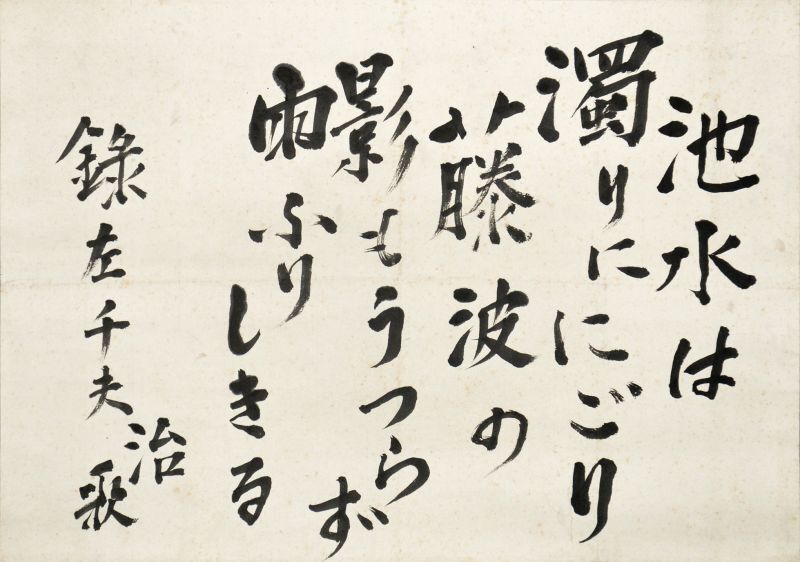 池水は
濁りににごり
藤波の
影もうつらず
雨ふりしきる
録左千夫歌
治